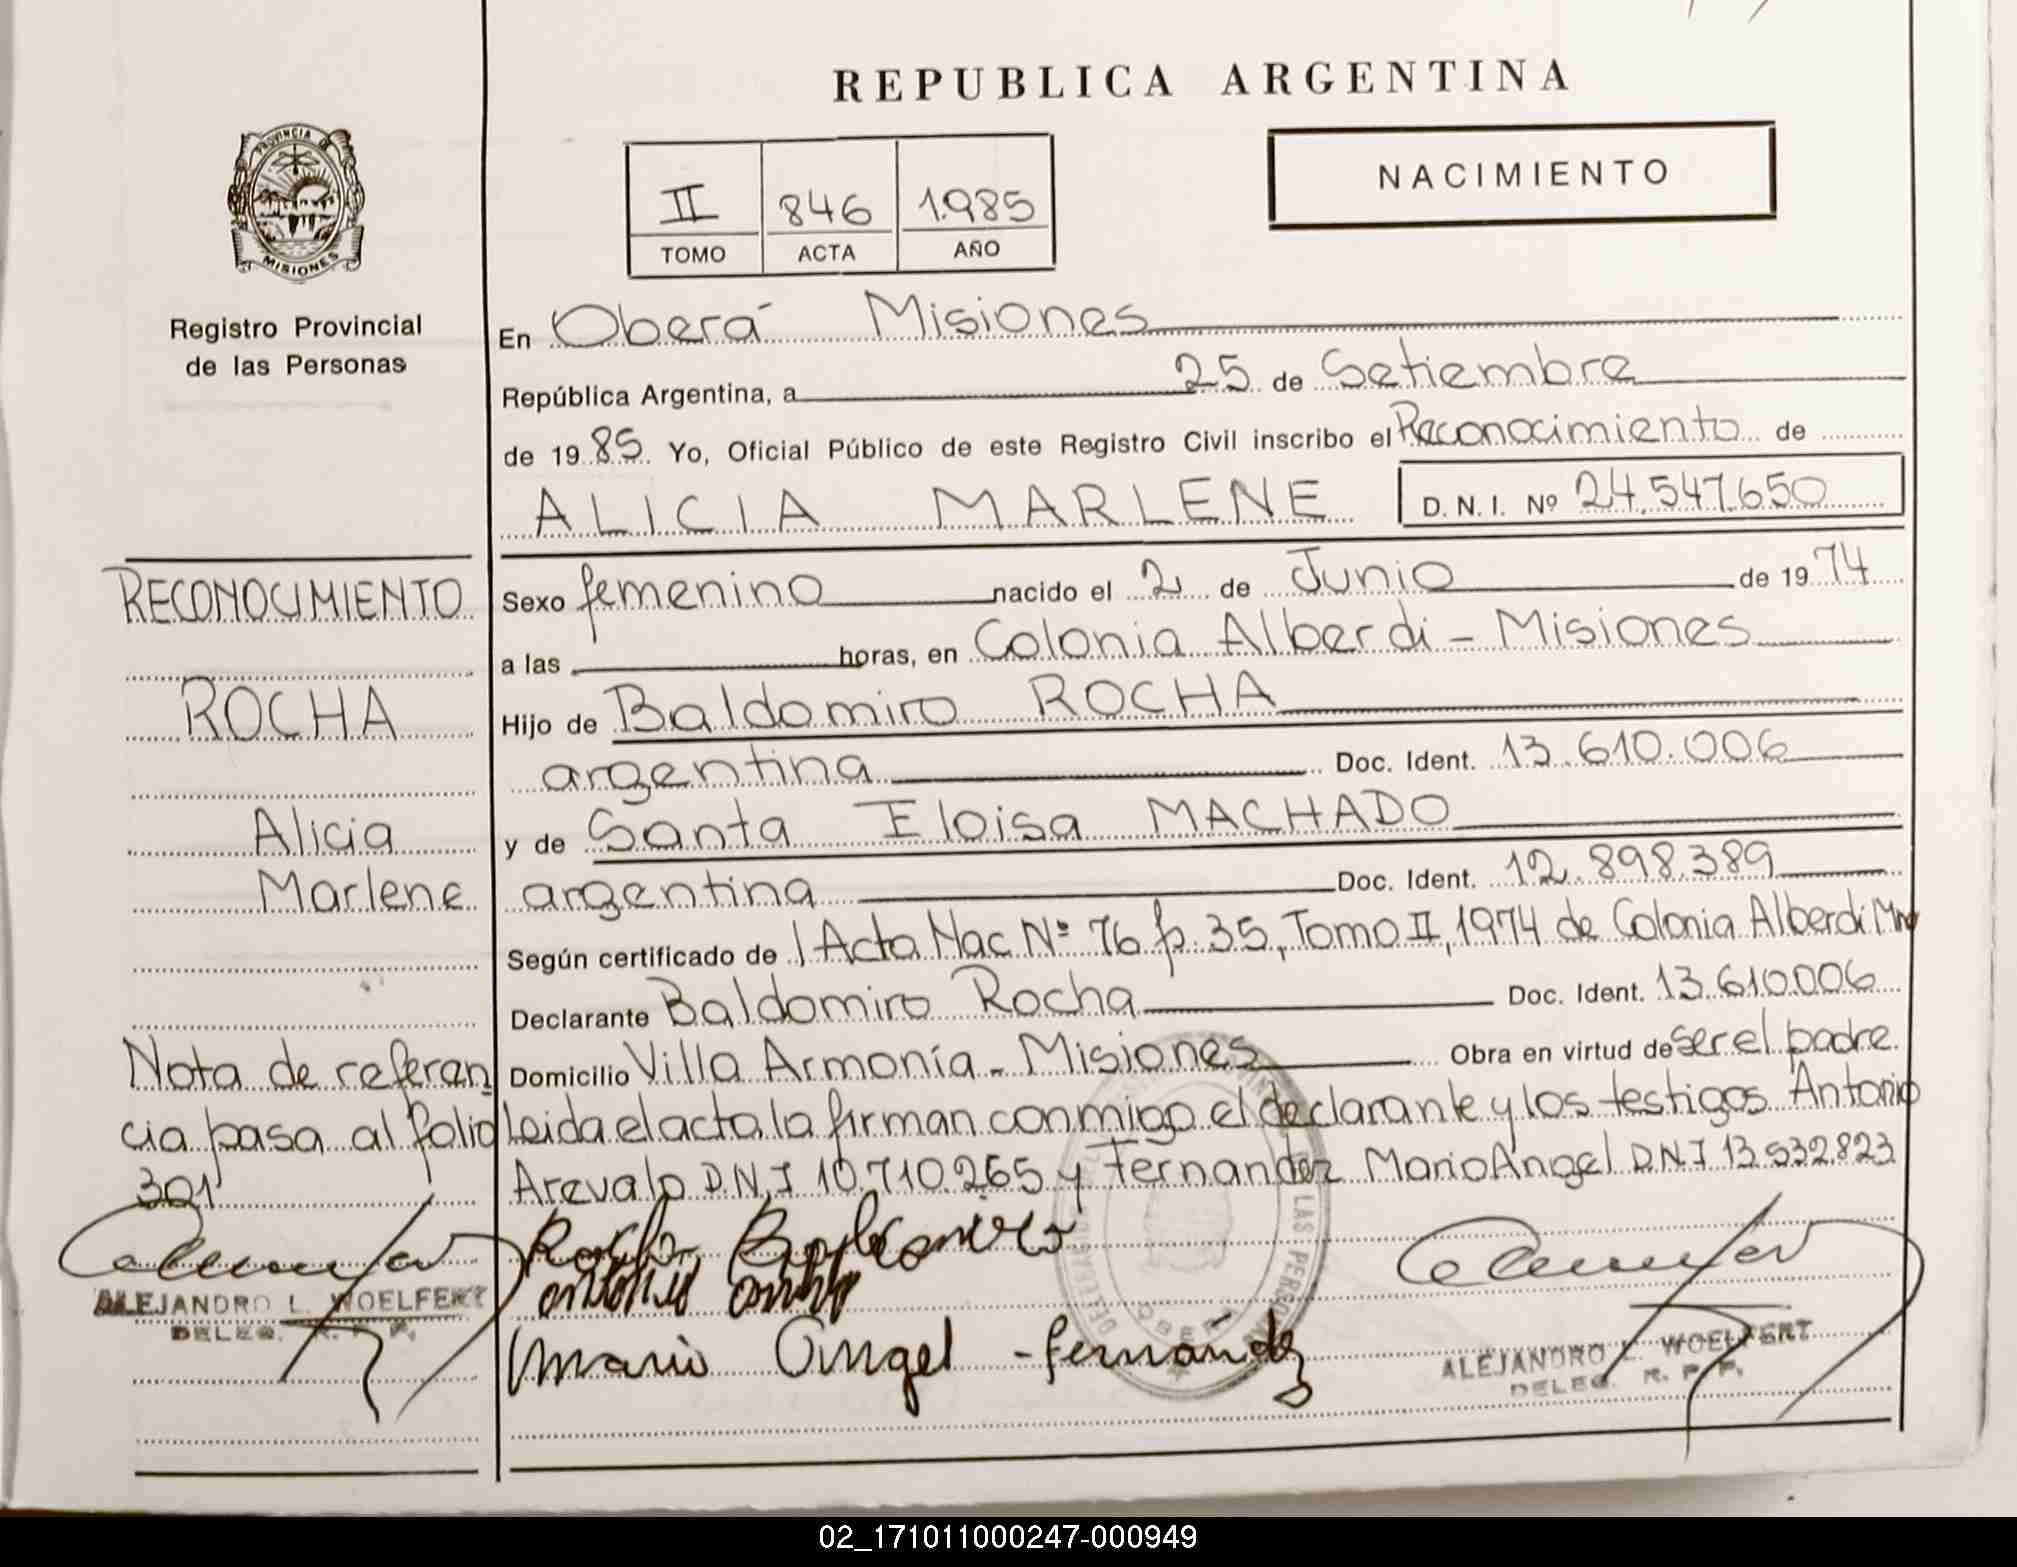 REPUBLICA ARGENTINA
PROVINCIA DE
MISIONES
Registro Provincial
de las Personas
II 846 1.985
TOMO ACTA AÑO
NACIMIENTO
En Oberá Misiones
República Argentina, a 25 de Setiembre
de 19 85 Yo, Oficial Público de este Registro Civil inscribo el Reconocimiento de
ALICIA MARLENE D. N. I. Nº 24.547.650
RECONOCIMIENTO
ROCHA
Alicia
Marlene
Nota de referen
cia pasa al folio
301
ALEJANDRO L. WOELFERT
DELEG. R. P. P.
Sexo femenino nacido el 2 de Junio de 19 74
a las horas, en Colonia Alberdi - Misiones
Hijo de Baldomiro ROCHA
argentina Doc. Ident. 13.610.006
y de Santa Eloisa MACHADO
argentina Doc. Ident. 12.898.389
Según certificado de / Acta Nac Nº 76 f. 35, Tomo II, 1974 de Colonia Alberdi Mnes
Declarante Baldomiro Rocha Doc. Ident. 13.610.006
Domicilio Villa Armonía - Misiones Obra en virtud de ser el padre.
Leida el acta la firman conmigo el declarante y los testigos Antonio
Arevalo D.N.I 10.710.265 y Fernandez Mario Angel D.N.I 13.532.823
Rocha Baldomiro
Mario Angel - Fernández
LAS PERSONAS
OBERA
ALEJANDRO L. WOELFERT
DELEG. R. P. P.
02_171011000247-000949